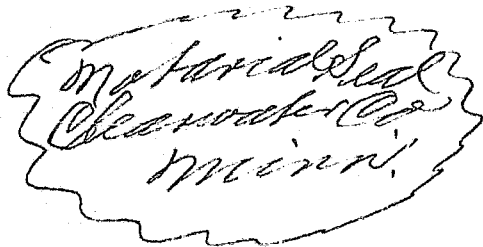 Notarial Seal
Clearwater Co
Minn.